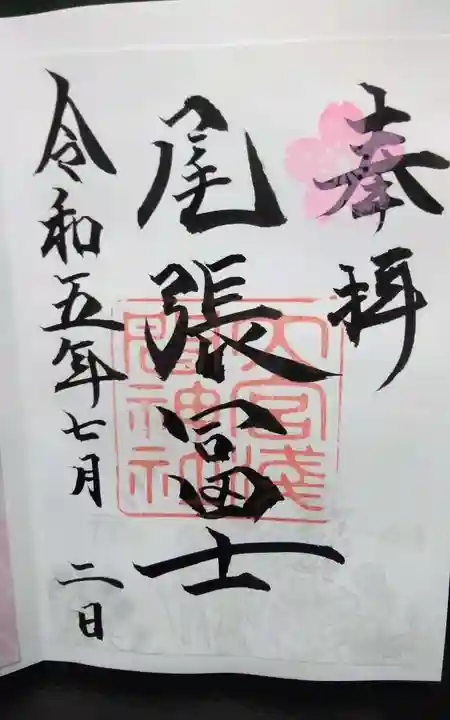 奉拝
尾張冨士
大宮浅間神社
令和五年七月二日